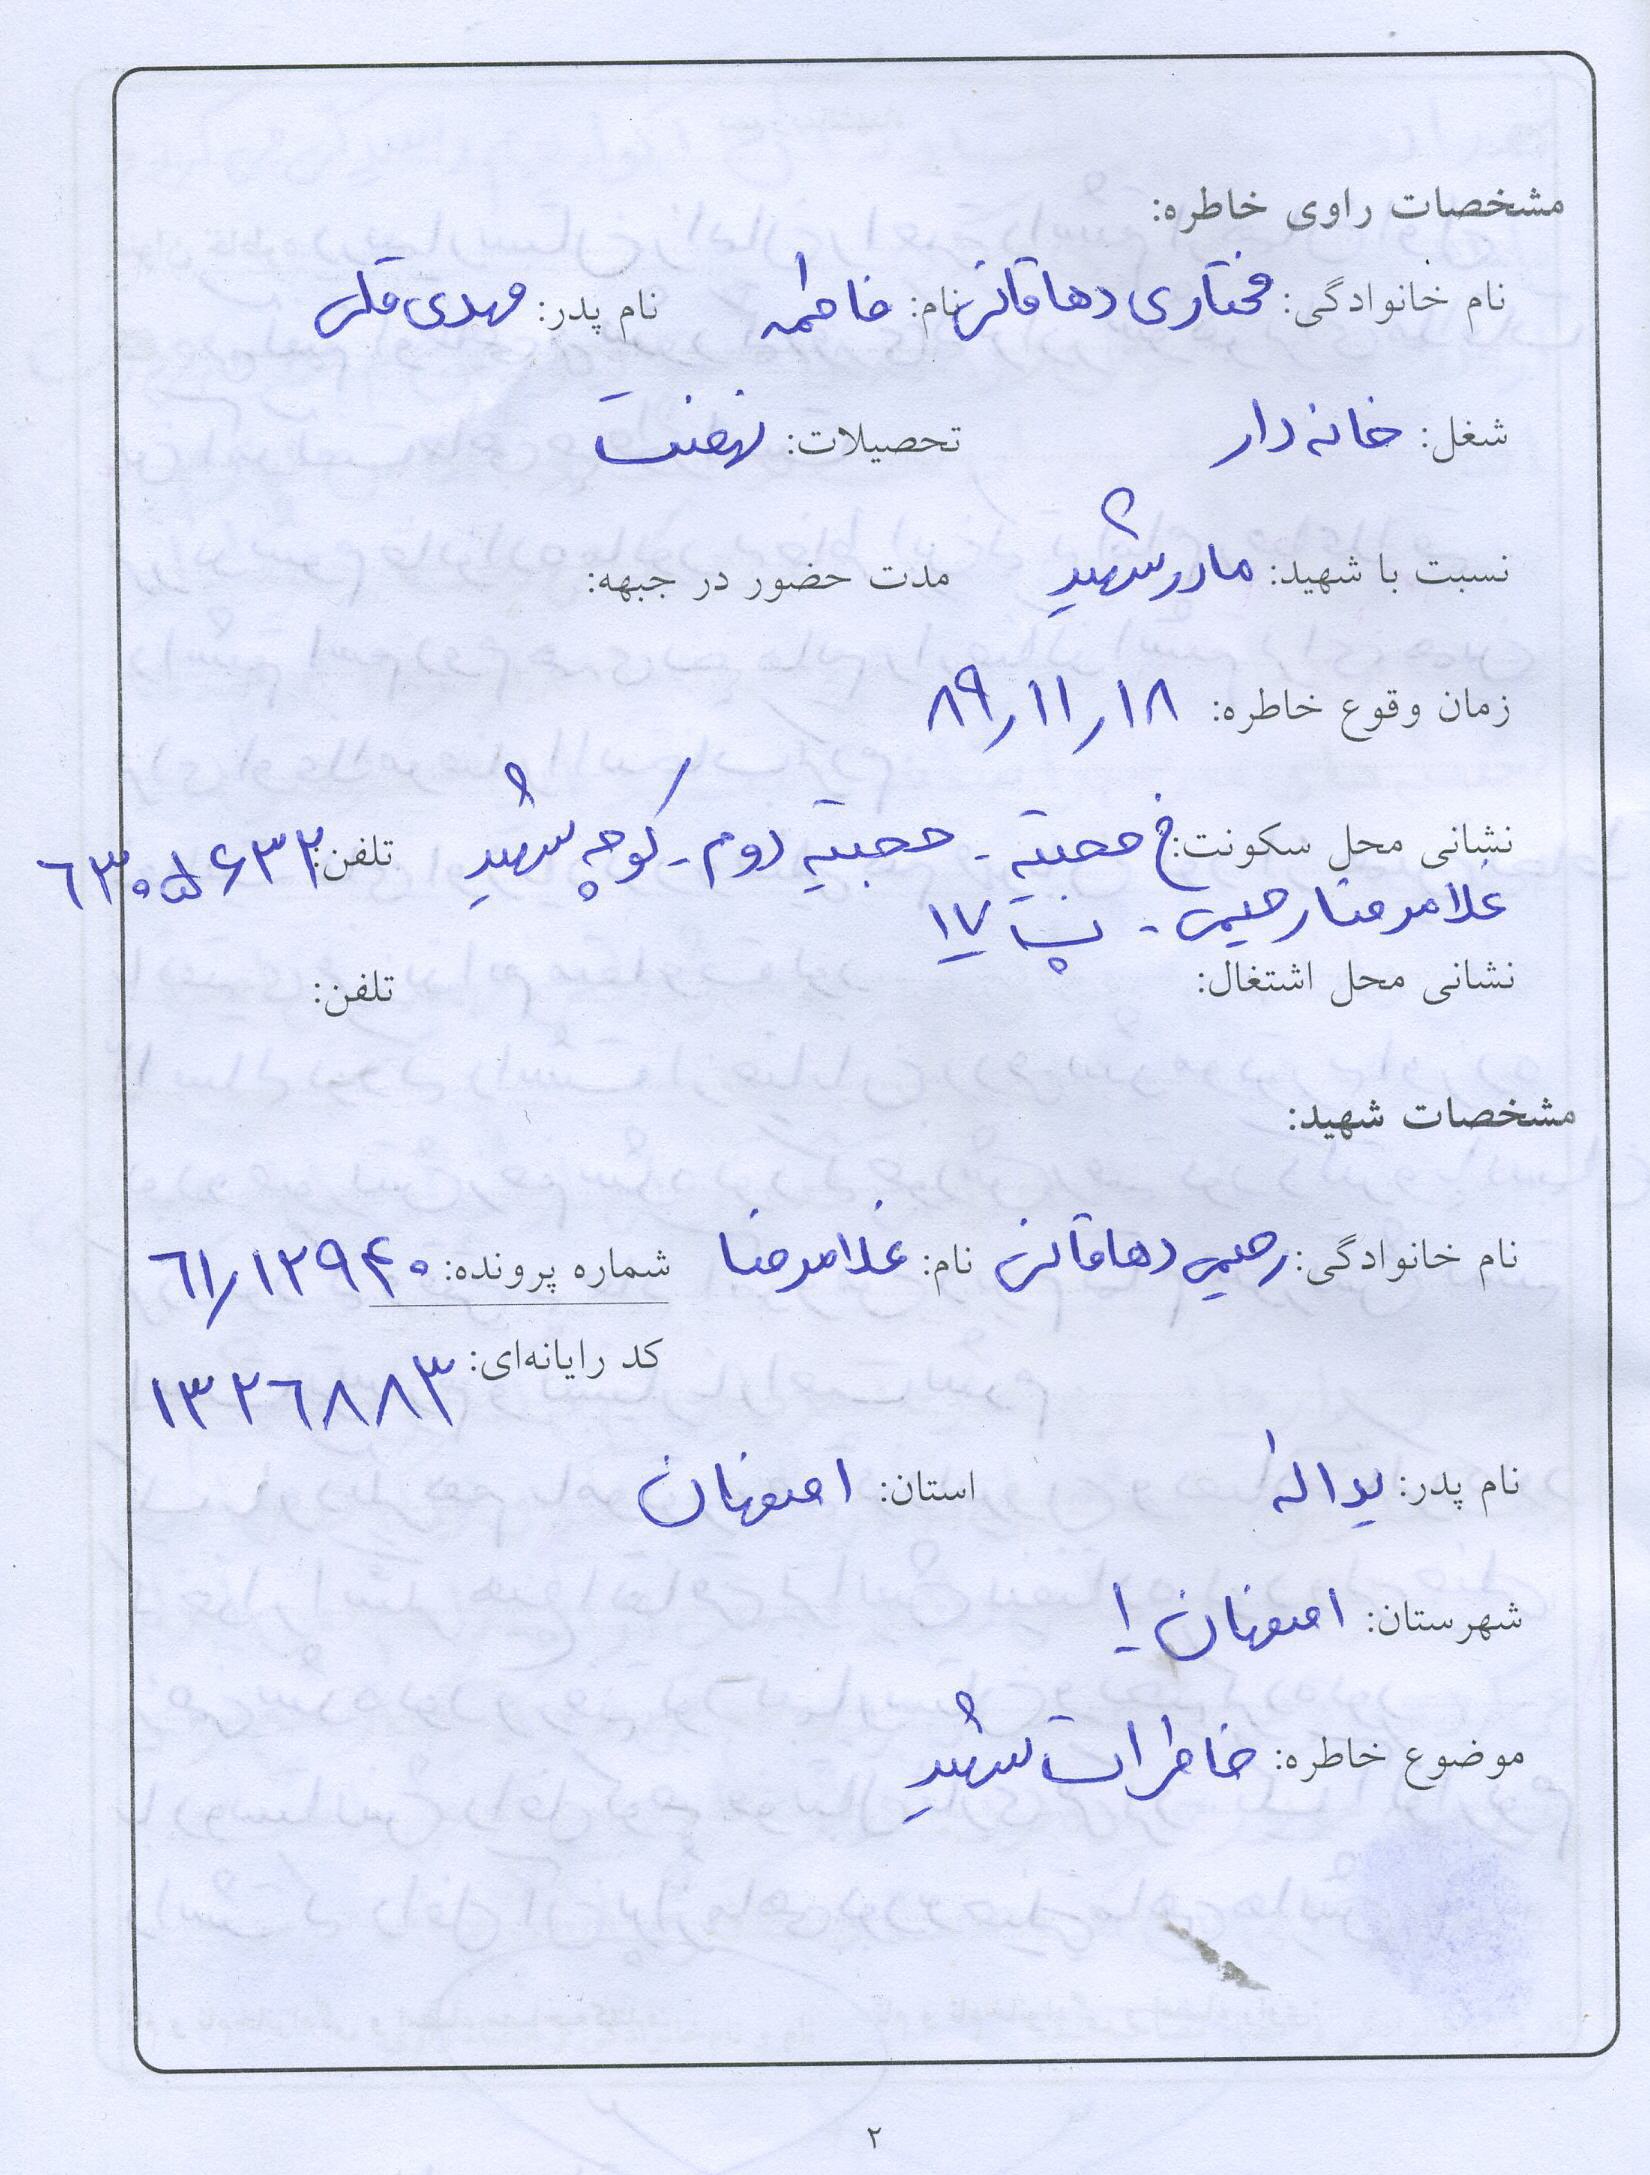 مشخصات راوی خاطره:
نام خانوادگی: مختاری دهاقانی نام: فاطمه نام پدر: مهدی قلی
شغل: خانه دار تحصیلات: نهضت
نسبت با شهید: مادر شهید مدت حضور در جبهه:
زمان وقوع خاطره: ۸۹/۱۱/۱۸
نشانی محل سکونت: خ حجتیه - حجتیه دوم - کوچه شهید تلفن:
غلامرضا رحیمی - پ ۱۷
نشانی محل اشتغال: تلفن:
مشخصات شهید:
نام خانوادگی: رحیمی دهاقانی نام: غلامرضا شماره پرونده: ۶۱/۱۲۹۴۰
کد رایانه‌ای: ۱۳۲۶۸۸۳
نام پدر: یداله استان: اصفهان
شهرستان: اصفهان
موضوع خاطره: خاطرات شهید
۲